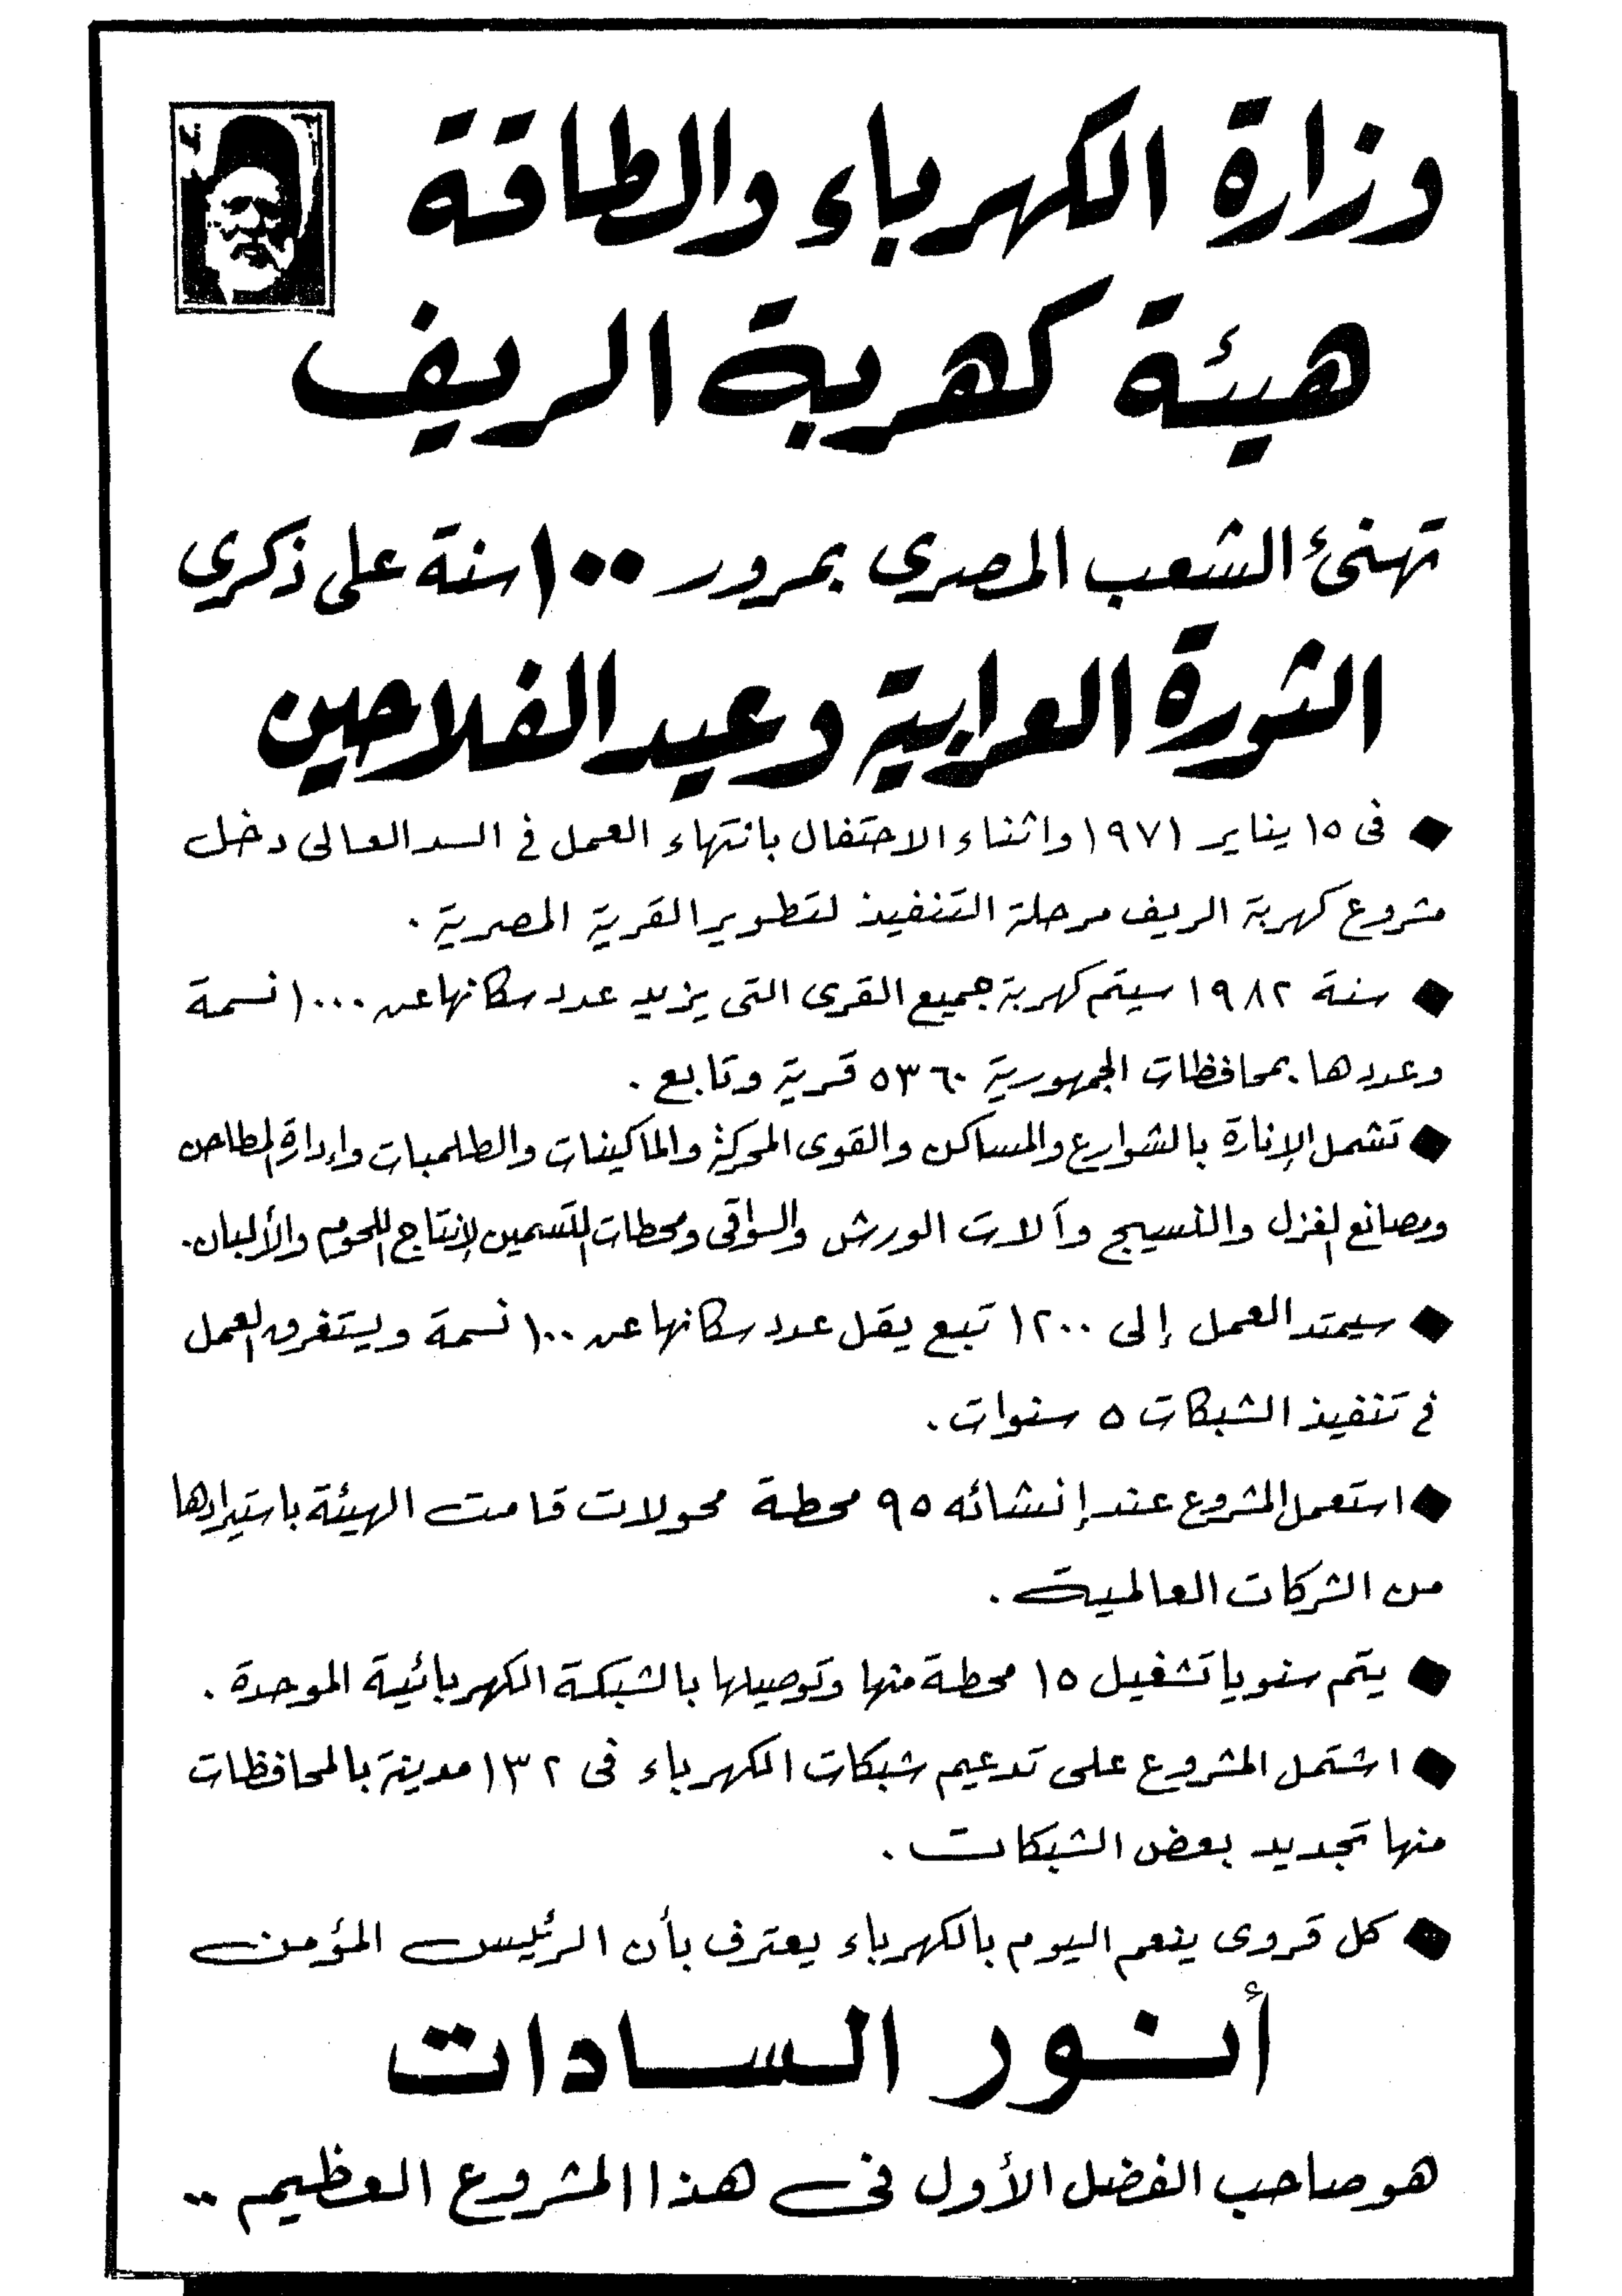 وزارة الكهرباء والطاقة
هيئة كهربة الريف
تهنئ الشعب المصرى بمرور ١٠٠ سنة على ذكرى
الثورة العرابية وعيد الفلاحين
◆ فى ١٥ يناير ١٩٧١ واثناء الاحتفال بانتهاء العمل فى السد العالى دخل
مشروع كهربة الريف مرحلة التنفيذ لتطوير القرية المصرية .
◆ سنة ١٩٨٢ سيتم كهربة جميع القرى التى يزيد عدد سكانها عن ١٠٠٠ نسمة
وعددها بمحافظات الجمهورية ٥٣٦٠ قرية وتابع .
◆ تشمل الإنارة بالشوارع والمساكن والقوى المحركة والماكينات والطلمبات وإدارة المطاحن
ومصانع الغزل والنسيج وآلات الورش والسواقى ومحطات التسمين لإنتاج اللحوم والألبان.
◆ سيمتد العمل إلى ١٢٠٠ تبع يقل عدد سكانها عن ١٠٠ نسمة ويستغرق العمل
فى تنفيذ الشبكات ٥ سنوات .
◆ استعمل المشروع عند إنشائه ٩٥ محطة محولات قامت الهيئة باستيرادها
من الشركات العالمية .
◆ يتم سنويا تشغيل ١٥ محطة منها وتوصيلها بالشبكة الكهربائية الموحدة .
◆ اشتمل المشروع على تدعيم شبكات الكهرباء فى ١٣٢ مدينة بالمحافظات
منها تجديد بعض الشبكات .
◆ كل قروى ينعم اليوم بالكهرباء يعترف بأن الرئيس المؤمن
أنور السادات
هو صاحب الفضل الأول فى هذا المشروع العظيم ..